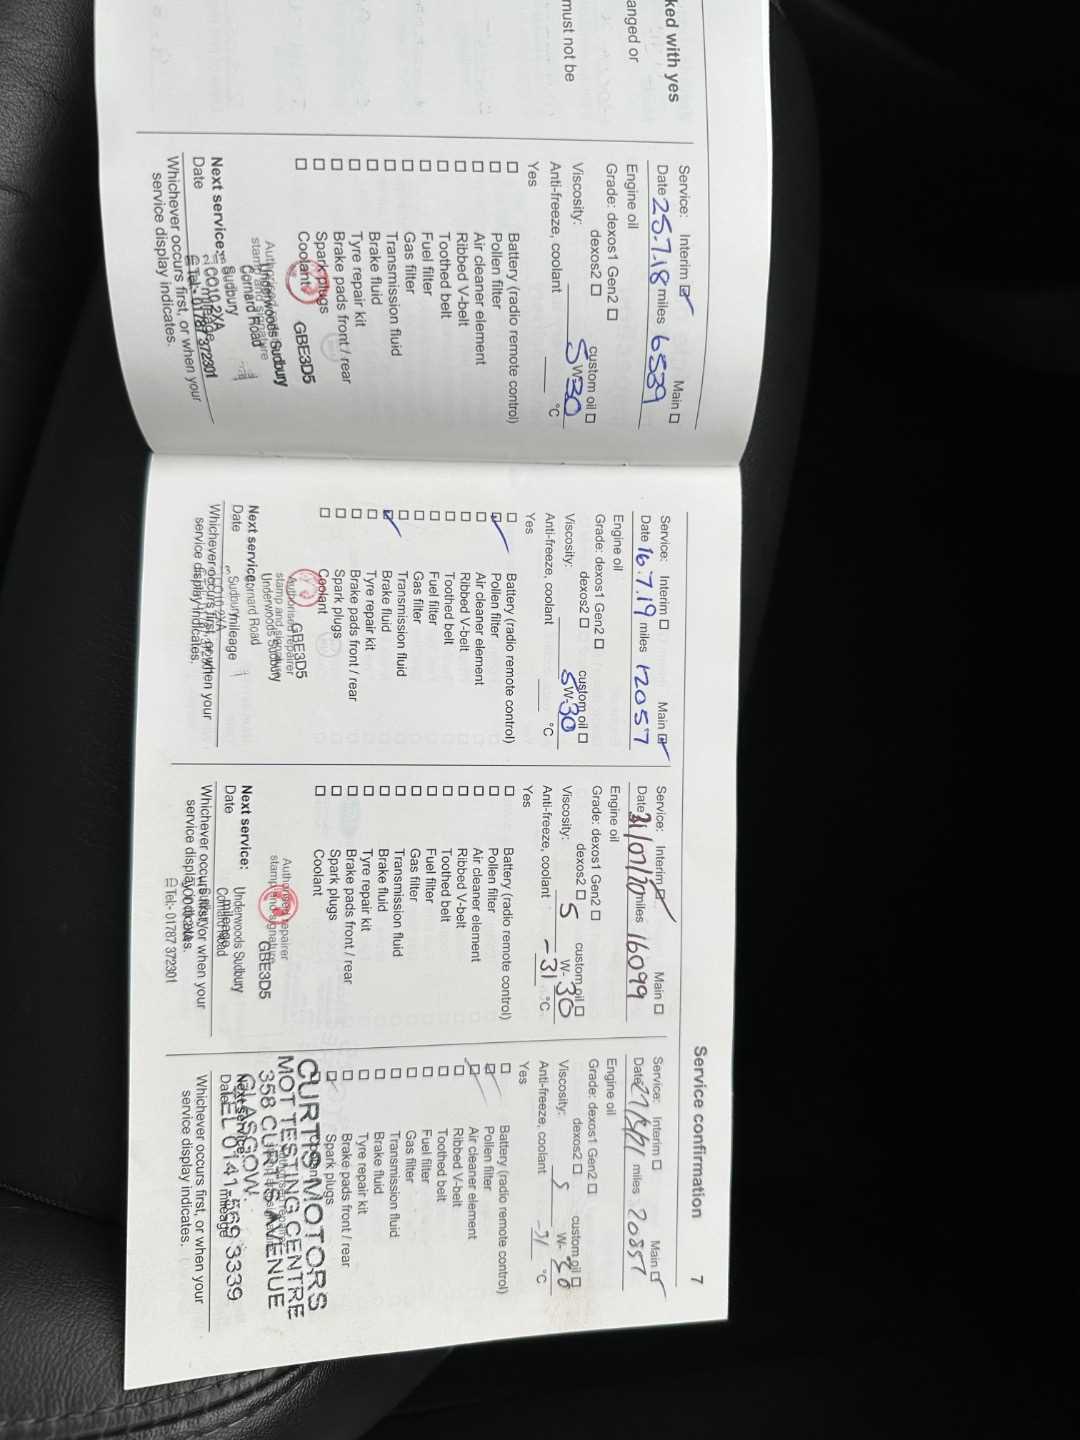 ked with yes
anged or
must not be
Service: Interim ☑ Main ☐
Date 25.7.18 miles 6539
Engine oil
Grade: dexos1 Gen2 ☐
dexos2 ☐ custom oil ☐
Viscosity: 5 W-30
Anti-freeze, coolant ____ °C
Yes
☐ Battery (radio remote control)
☐ Pollen filter
☐ Air cleaner element
☐ Ribbed V-belt
☐ Toothed belt
☐ Fuel filter
☐ Gas filter
☐ Transmission fluid
☐ Brake fluid
☐ Tyre repair kit
☐ Brake pads front / rear
☐ Spark plugs
☐ Coolant
GBE3D5
Authorised
stamp and signature
Underwoods Sudbury
Cornard Road
Sudbury
CO10 2XA
Tel:- 01787 372301
Next service:
Date mileage
Whichever occurs first, or when your
service display indicates.
Service confirmation 7
Service: Interim ☐ Main ☑
Date 16.7.19 miles 12057
Engine oil
Grade: dexos1 Gen2 ☐
dexos2 ☐ custom oil ☐
Viscosity: 5 W-30
Anti-freeze, coolant ____ °C
Yes
☐ Battery (radio remote control)
☑ Pollen filter
☐ Air cleaner element
☐ Ribbed V-belt
☐ Toothed belt
☐ Fuel filter
☐ Gas filter
☐ Transmission fluid
☑ Brake fluid
☐ Tyre repair kit
☐ Brake pads front / rear
☐ Spark plugs
☐ Coolant
GBE3D5
Authorised repairer
stamp and signature
Underwoods Sudbury
Cornard Road
Sudbury
Next service:
Date mileage
Whichever occurs first, or when your
service display indicates.
Service: Interim ☑ Main ☐
Date 31/07/20 miles 16099
Engine oil
Grade: dexos1 Gen2 ☐
dexos2 ☐ custom oil ☐
Viscosity: 5 W-30
Anti-freeze, coolant -31 °C
Yes
☐ Battery (radio remote control)
☐ Pollen filter
☐ Air cleaner element
☐ Ribbed V-belt
☐ Toothed belt
☐ Fuel filter
☐ Gas filter
☐ Transmission fluid
☐ Brake fluid
☐ Tyre repair kit
☐ Brake pads front / rear
☐ Spark plugs
☐ Coolant
Authorised repairer
stamp and signature
GBE3D5
Underwoods Sudbury
Cornard Road
Tel:- 01787 372301
Next service:
Date mileage
Whichever occurs first, or when your
service display indicates.
Service: Interim ☐ Main ☑
Date miles 20857
Engine oil
Grade: dexos1 Gen2 ☐
dexos2 ☐ custom oil ☐
Viscosity: 5 W-30
Anti-freeze, coolant -31 °C
Yes
☐ Battery (radio remote control)
☑ Pollen filter
☑ Air cleaner element
☐ Ribbed V-belt
☐ Toothed belt
☐ Fuel filter
☐ Gas filter
☐ Transmission fluid
☐ Brake fluid
☐ Tyre repair kit
☐ Brake pads front / rear
☐ Spark plugs
CURTIS MOTORS
MOT TESTING CENTRE
358 CURTIS AVENUE
GLASGOW.
TEL 0141-569 3339
Next service:
Date mileage
Whichever occurs first, or when your
service display indicates.